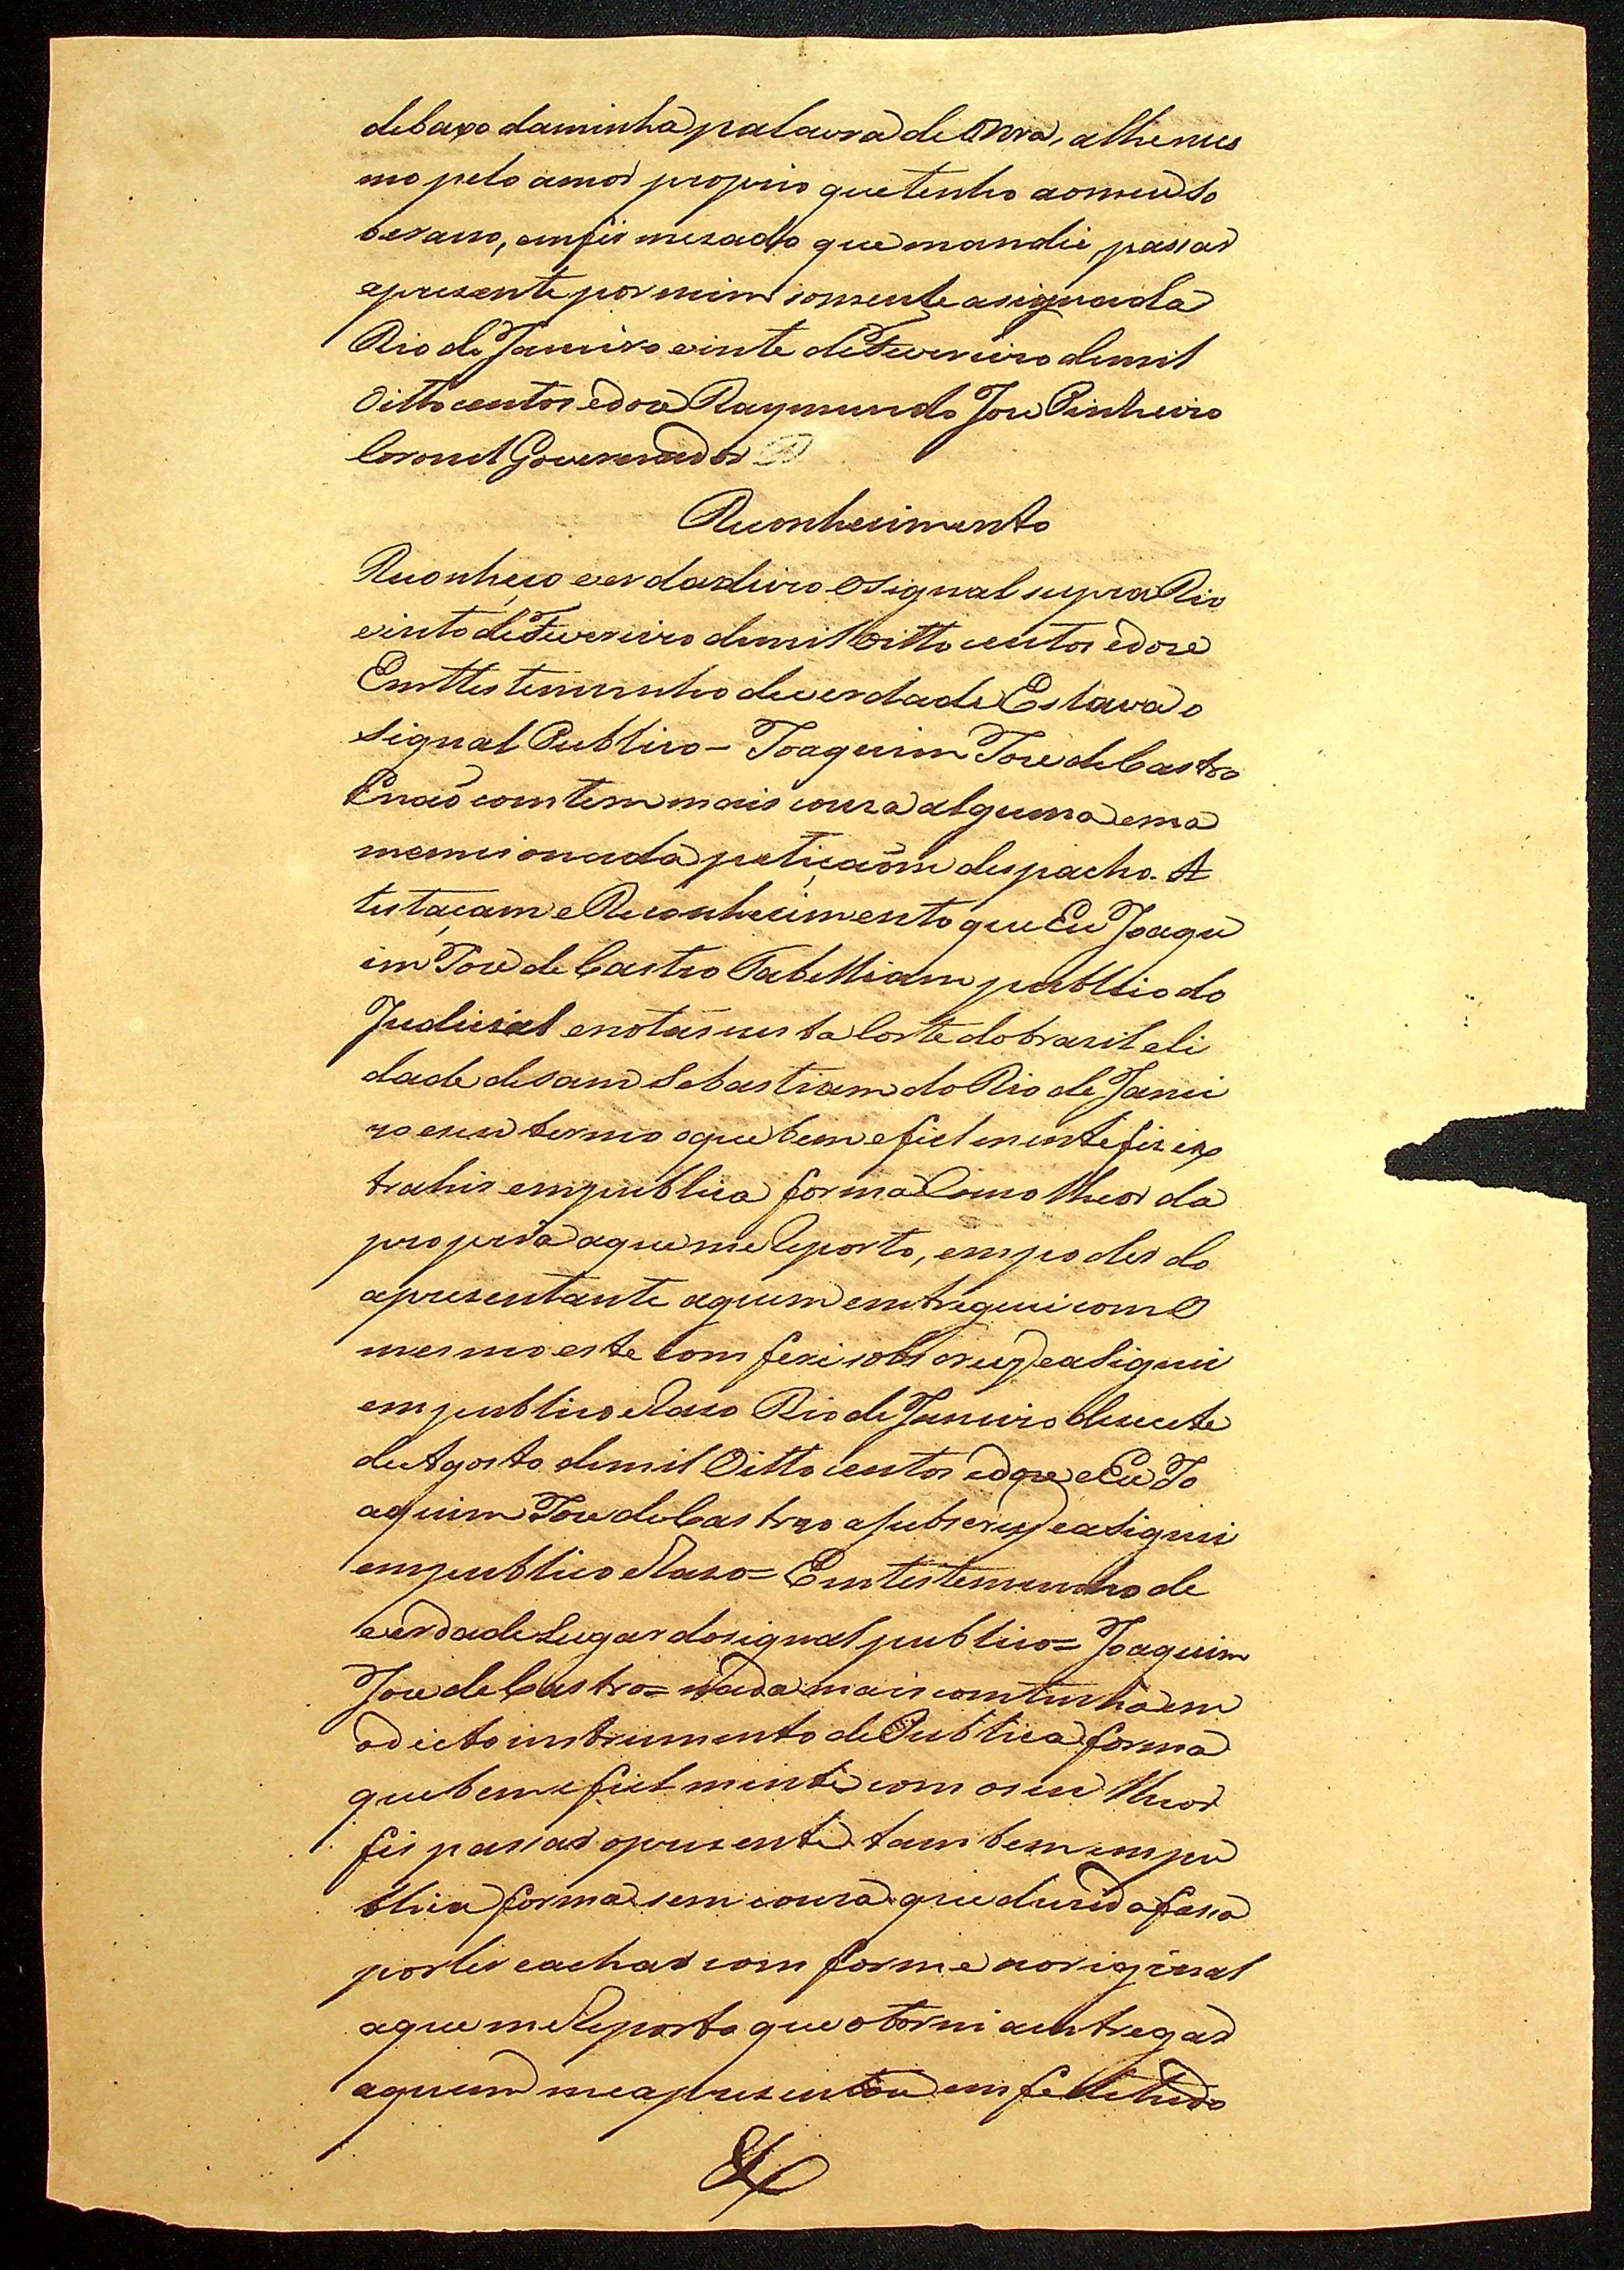 debaxo daminha palavra de Onra, athemes
mo pelo amor proprio quetenho aomeu So
berano, emfir mezado que mandie passar
apresente por mim somente asignada
Rio de Janeiro vinte de Fevereiro demil
Oitto centos edoze Raymundo Joze Pinheiro
Coronel Governador
Reconhecimento
Reconheço verdadeiro o signal supra Rio
vinte de Fevereiro demil Oitto centos edoze
Emttestemunho deverdade Estava o
Signal Publico - Joaquim Joze de Castro
Enaõ comtem mais couza alguma ema
memcionada petiçaõm despacho. A
testaçam e Reconhecimento que Eu Joaqu
im Joze de Castro Tabelliam publico do
Judicial enotas nesta Corte do brazil eci
dade desam Sebastiam do Rio de Janei
ro eseu termo oque bem efiel mente fiz ex
trahir empublica forma Como theor da
propria aque me Reporto, empoder do
apresentante aquem emtreguei com O
mesmo este Com feri sobscrevy easignei
empublico eRazo Rio de Janeiro dezecete
de Agosto demil Oitto centos edoze e Eu Jo
aquim Joze de Castro a Subscrevy easignei
empublico eRazo = Emtestemunho de
verdade Lugar do signal publico = Joaquim
Joze de Castro = nada mais comtinha em
odicto instrumento de Publica forma
que bem e fiel mente com oseu theor
fis passar opresente tam bem empu
blica forma sem couza que duvida fassa
porler eachar com forme aoriginal
aque me Reporto que otorni aentregar
aquem meapresentou em fe detudo